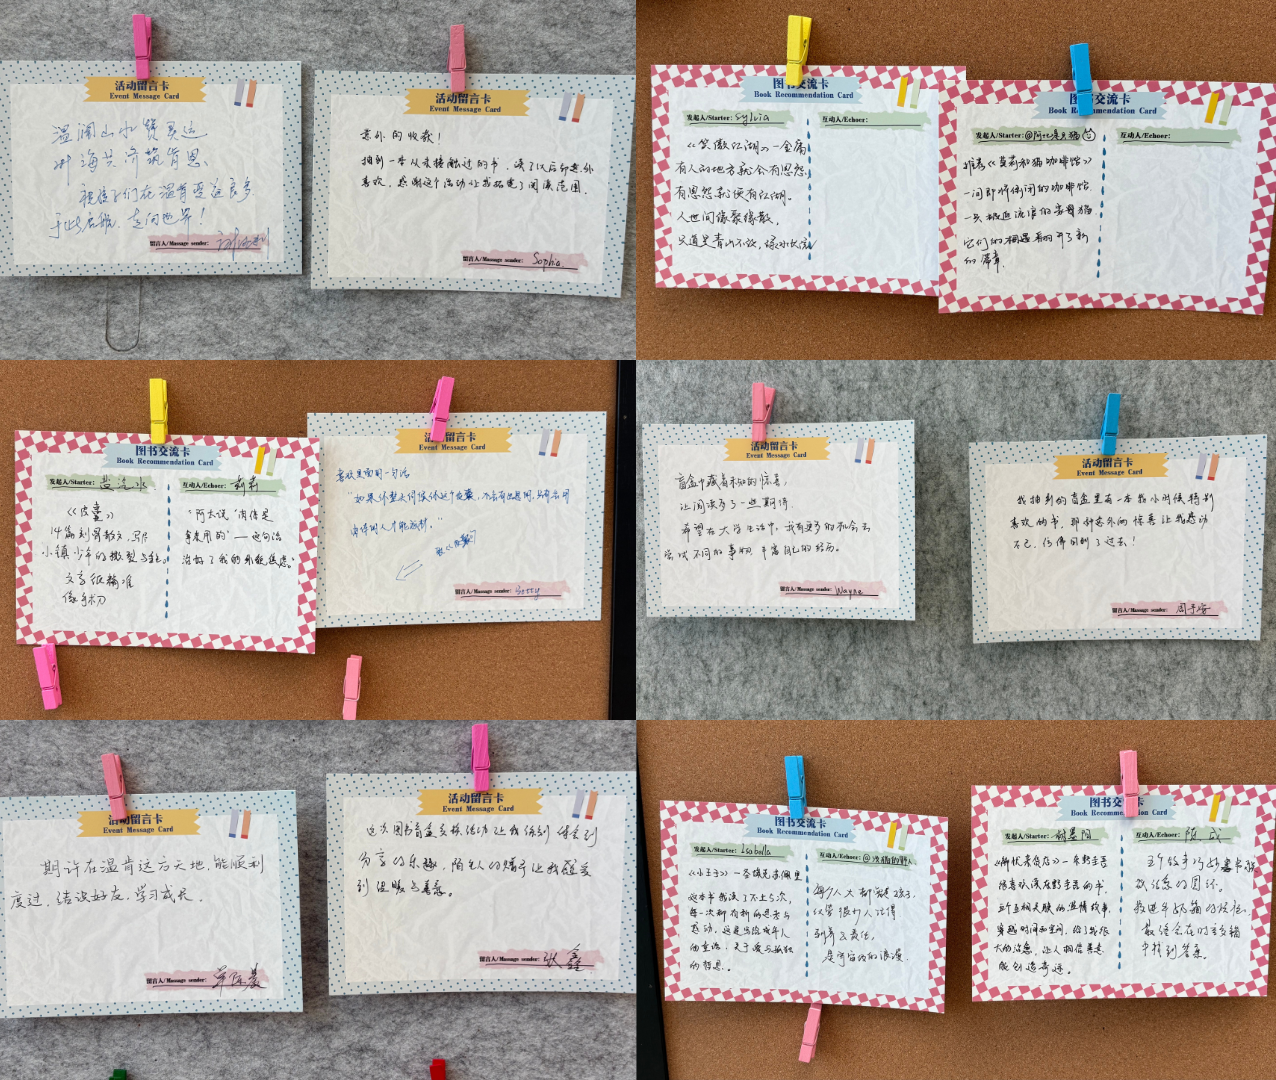 活动留言卡
Event Message Card
温润山水贤灵达
海共济筑肯恩
祝孩子们在温肯受益良多
于此启航,走向世界!
留言人/Massage sender:
活动留言卡
Event Message Card
意外的收获!
抽到一本从未接触过的书,读了以后却意外
喜欢,感谢这个活动让我拓宽了阅读范围。
留言人/Massage sender: Sophia
图书交流卡
Book Recommendation Card
发起人/Starter: Sylvia
互动人/Echoer:
《笑傲江湖》—金庸
有人的地方就会有恩怨
有恩怨就便有江湖。
人世间缘聚缘散
只道是青山不改,绿水长流
图书交流卡
Book Recommendation Card
发起人/Starter:@阿比是只猫
互动人/Echoer:
推荐《茉莉和猫咖啡馆》
一间即将倒闭的咖啡馆
一只被迫流浪的家养猫
它们的相遇翻开了新
的篇章.
图书交流卡
Book Recommendation Card
发起人/Starter: 盐汽水
互动人/Echoer: 莉莉
《皮囊》
14篇刻骨散文,写尽
小镇少年的撕裂与生。
文字极精准
像手术刀
"阿太说'肉体是
拿来用的'—这句话
治好了我的外貌焦虑。
活动留言卡
Event Message Card
喜欢里面的一句话
留言人/Massage sender: Betty
活动留言卡
Event Message Card
盲盒中藏着未知的惊喜,
让阅读多了一些期待
希望在大学生活中,我有更多的机会去
尝试不同的事物,丰富自己的经历。
留言人/Massage sender: Wayne
活动留言卡
Event Message Card
我抽到的盲盒里有一本我小时候特别
喜欢的书,那种意外的惊喜让我感动
不已,仿佛回到了过去!
留言人/Massage sender:
活动留言卡
Event Message Card
期许在温肯这方天地,能顺利
度过,结识好友,学习成长.
留言人/Massage sender:
活动留言卡
Event Message Card
这次图书盲盒交换活动让我体会到
分享的乐趣,陌生人的赠予让我感受
到温暖与善意。
留言人/Massage sender: 张鑫
图书交流卡
Book Recommendation Card
发起人/Starter: Isabella
互动人/Echoer:
《小王子》—圣埃克苏佩里
这本书我读了不止5次,
每一次都有新的思考与
感动,这是写给成年人
的童话,关于爱与孤独
的哲思.
每个人大都曾是孩子,
仅管很少人记得
别弄丢童年,
是宇宙级的浪漫
图书交流卡
Book Recommendation Card
发起人/Starter:
互动人/Echoer:
《解忧杂货店》—东野圭吾
很喜欢读东野圭吾的书,
五个互相关联的温情故事,
穿越时间与空间,给了我很
大的治愈,让人相信善意
能创造奇迹。
最终会在时空交错
中找到答案。